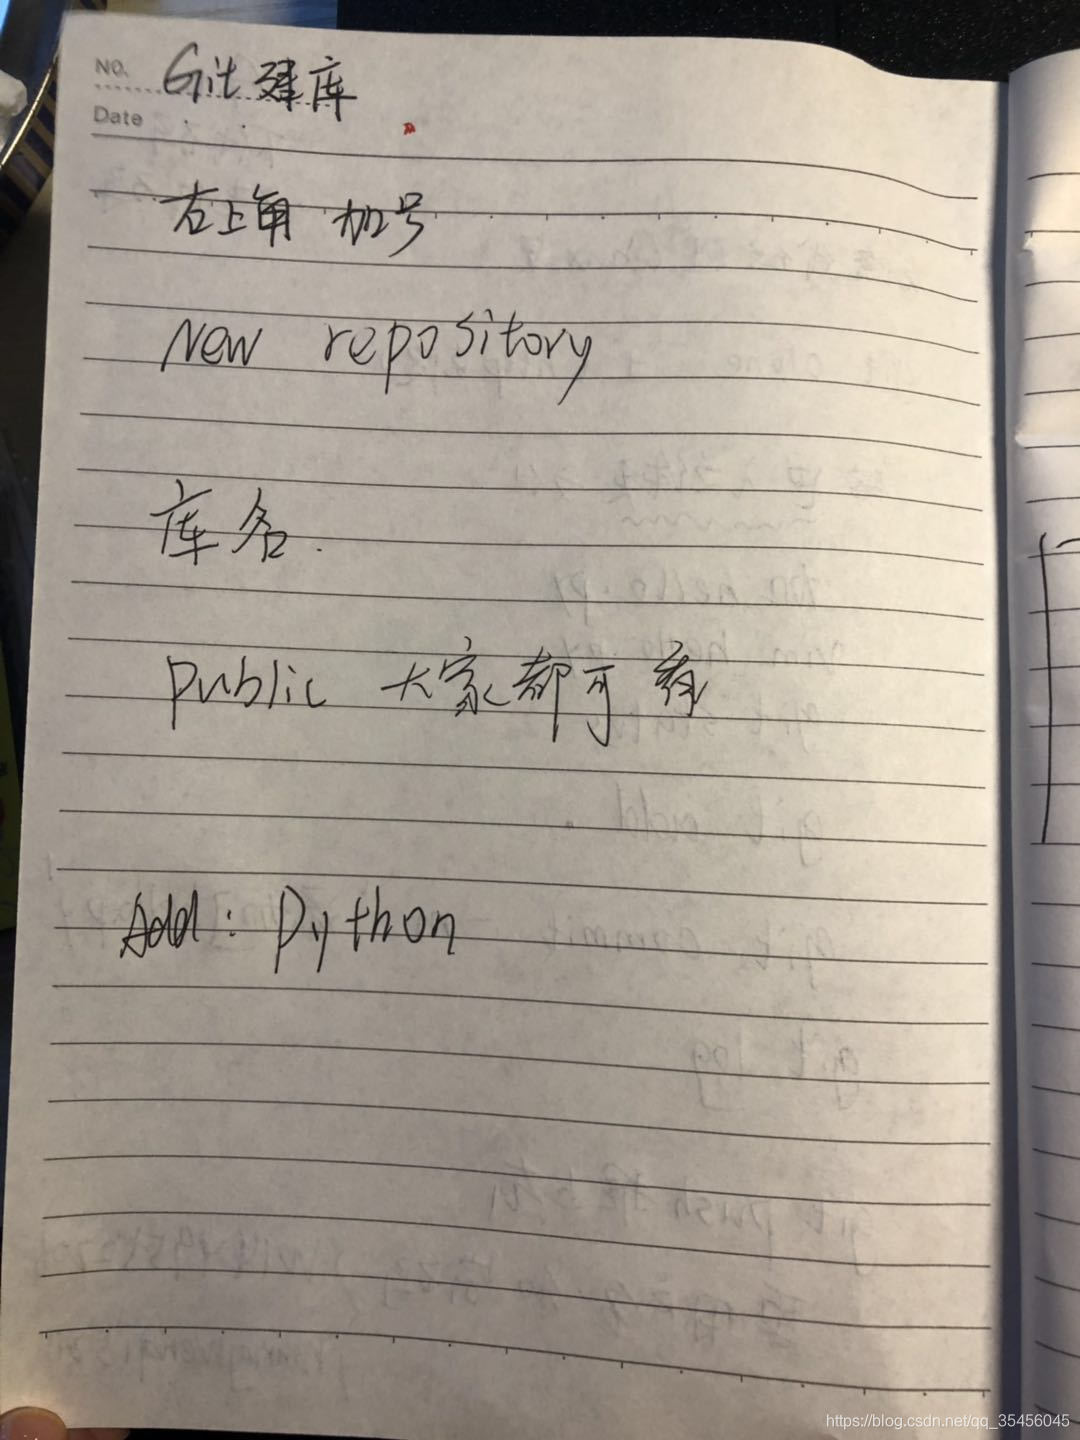 NO. Git 建库
Date
右上角 加号
New repository
库名.
public 大家都可看
Add: Python
https://blog.csdn.net/qq_35456045